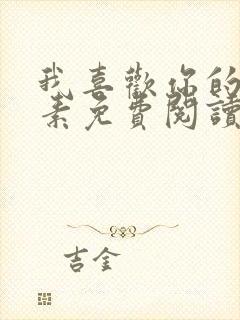 我喜歡你的
素免費閱讀
吉金